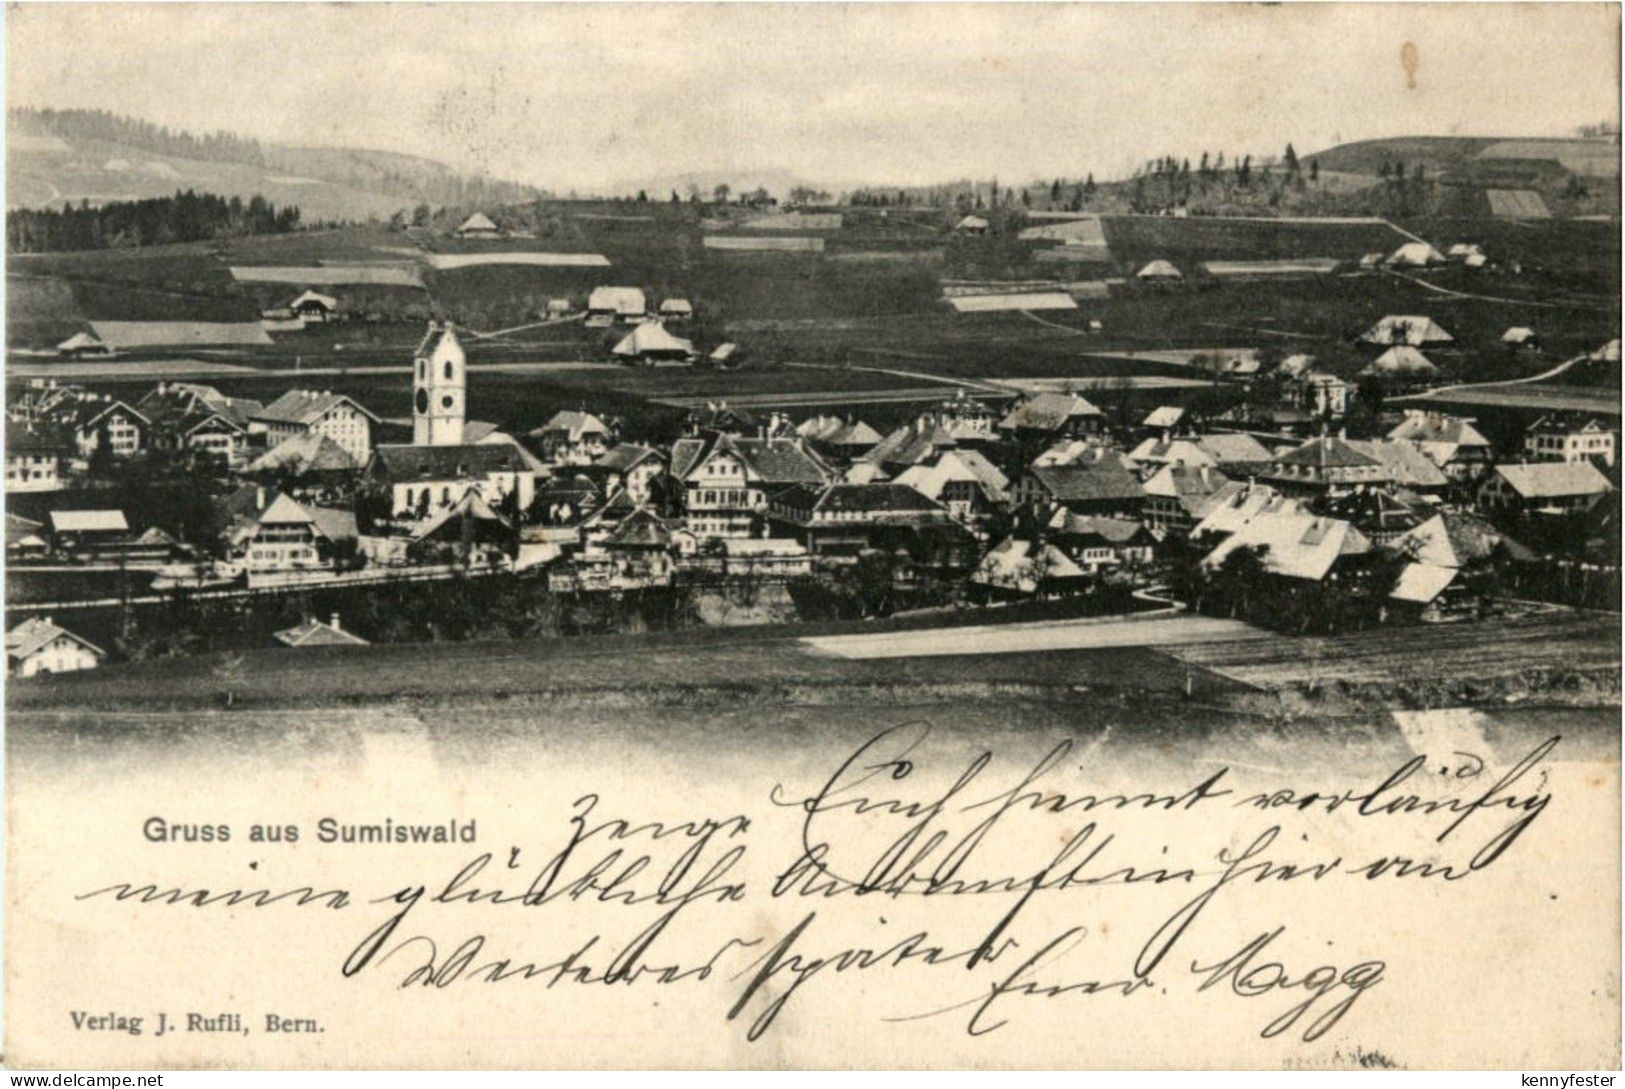 Gruss aus Sumiswald
Zeige Euch hiemit vorläufig
meine glückliche Ankunft in hier an
Weiteres später Euer. Migg
Verlag J. Rufli, Bern.
www.delcampe.net
kennyfester